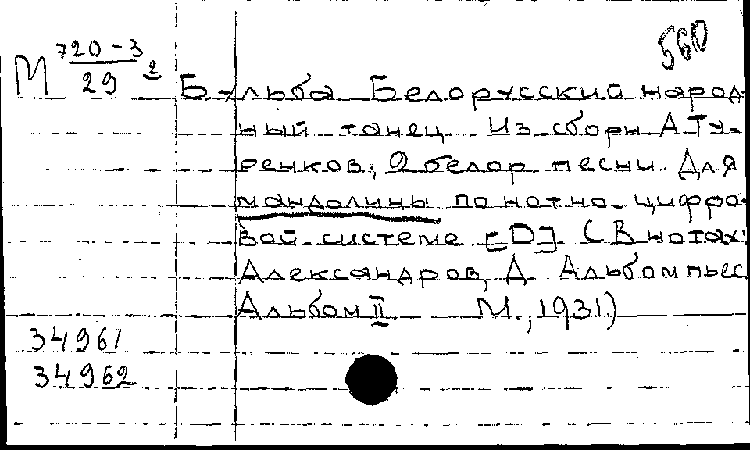 560
М 720-3/29 2
Бульба Белорусский народ
ный танец. Из сборн А. Ту-
ренков, 2 белор песни. Для
мандолины по нотно-цифро
вой системе [D]. (В нотах:
Александров, Д. Альбом пьес
Альбом II М., 1931)
34961
34962